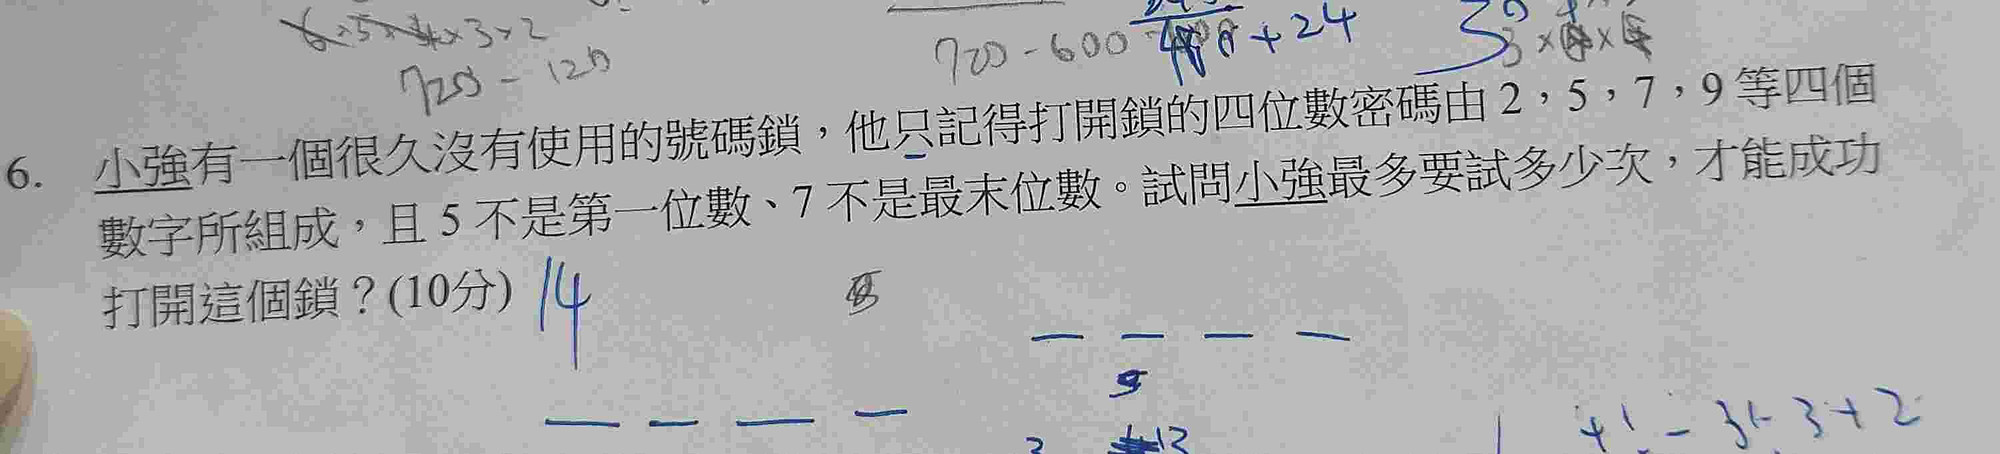 6×5×4×3×2
720-120
720-600
+24
6. 小強有一個很久沒有使用的號碼鎖，他只記得打開鎖的四位數密碼由 2，5，7，9 等四個
數字所組成，且 5 不是第一位數、7 不是最末位數。試問小強最多要試多少次，才能成功
打開這個鎖？(10分) 14
4!-3!-3!+2